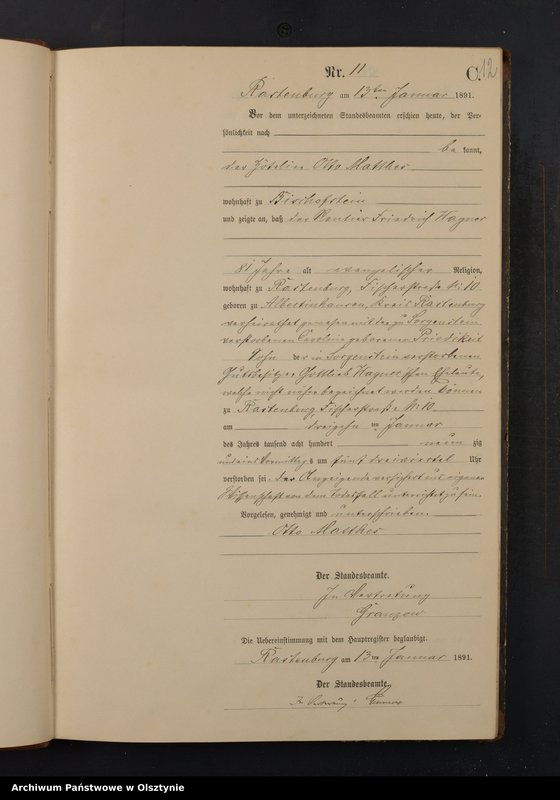 Nr. 11
C. 12
Rastenburg am 13ten Januar 1891.
Vor dem unterzeichneten Standesbeamten erschien heute, der Per-
sönlichkeit nach
be kannt,
der Otto Matthes
wohnhaft zu Bischofstein
und zeigte an, daß der Rentier Friedrich Wagner
81 Jahre alt evangelischer Religion,
wohnhaft zu Rastenburg, Fischerstraße No 10
geboren zu Kreis Rastenburg
verheirathet gewesen mit der zu Sorgenstein
verstorbenen Caroline geborenen
Sohn der in Sorgenstein verstorbenen
Gutsbesitzer Gottlieb Wagner'schen Eheleute,
welche nicht näher bezeichnet werden können
zu Rastenburg, Fischerstraße No 10
am dreizehn ten Januar
des Jahres tausend acht hundert neun zig
und eins Vormittags um fünf dreiviertel Uhr
verstorben sei. Der Anzeigende versichert aus eigener
Wissenschaft von dem Todesfall unterrichtet zu sein.
Vorgelesen, genehmigt und unterschrieben.
Otto Matthes
Der Standesbeamte.
In Vertretung
Granzow
Die Uebereinstimmung mit dem Hauptregister beglaubigt.
Rastenburg am 13ten Januar 1891.
Der Standesbeamte.
In Vertretung: Granzow
Archiwum Państwowe w Olsztynie